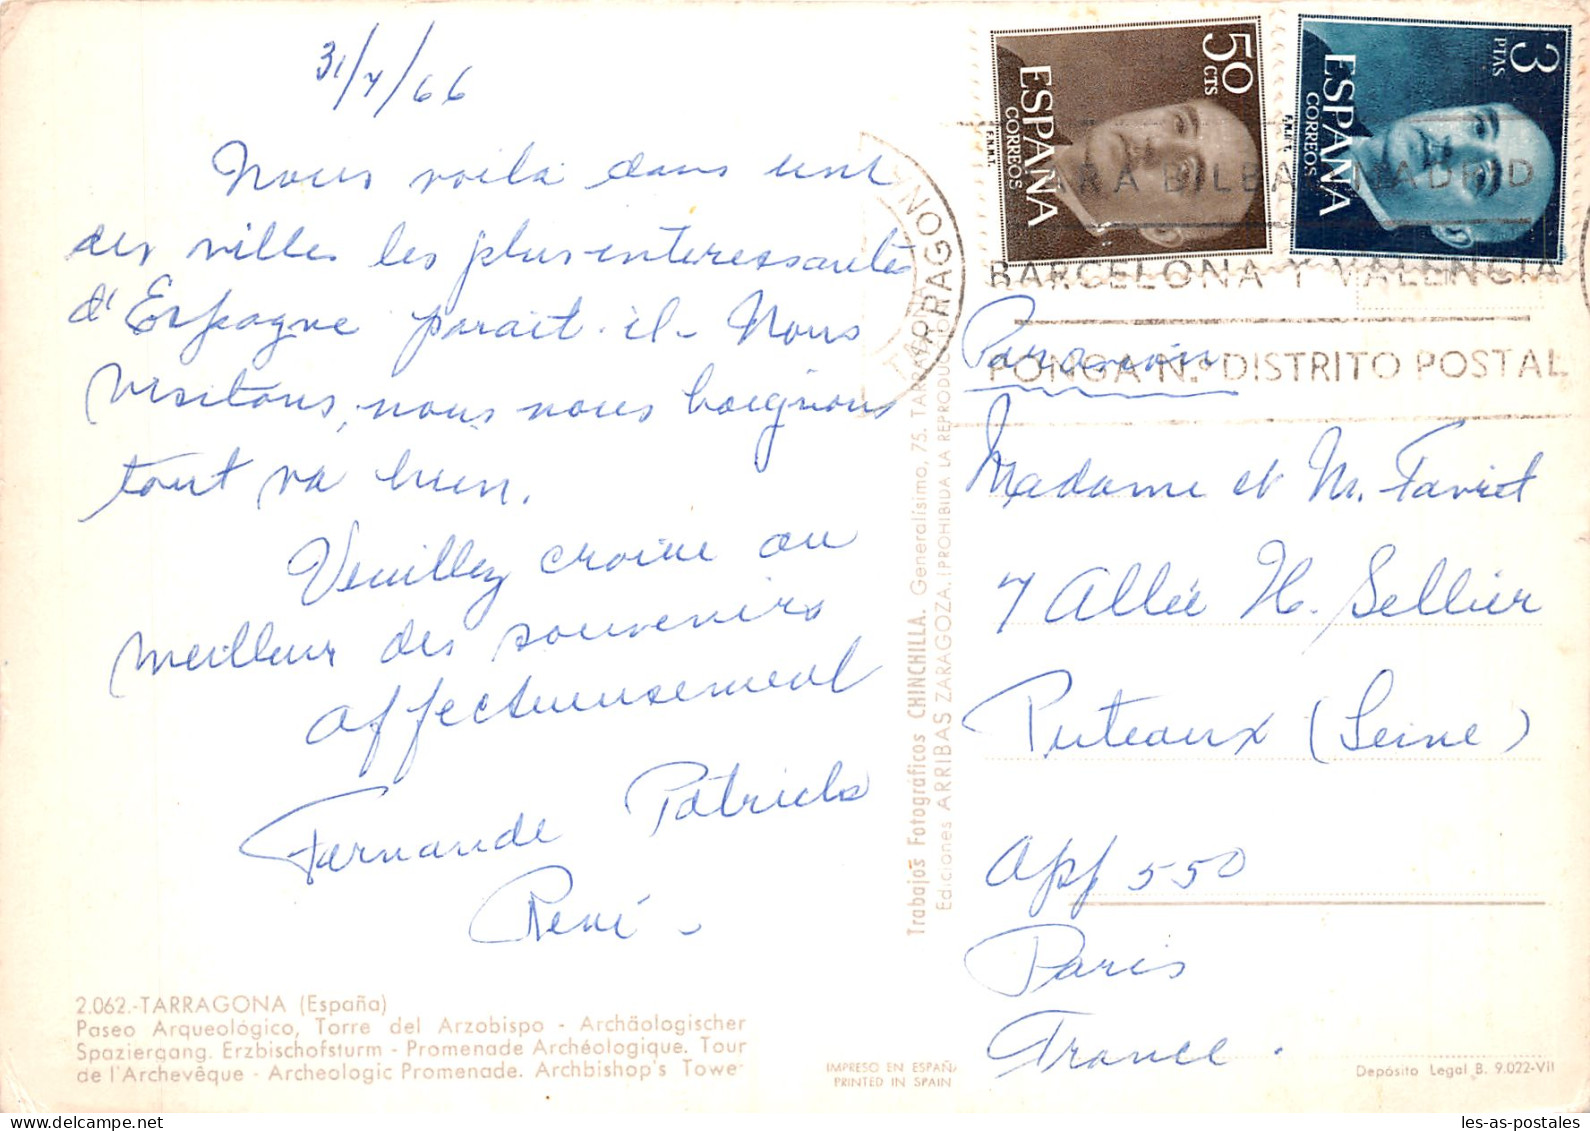 31/7/66
Nous voilà dans une
des villes les plus interessantes
d'Espagne parait-il - Nous
visitons, nous nous baignons
tout va bien.
Veuillez croire au
meilleur des souvenirs
affectueusement
Fernande Patricks
René -
2.062.-TARRAGONA (España)
Paseo Arqueológico, Torre del Arzobispo - Archäologischer
Spaziergang. Erzbischofsturm - Promenade Archéologique. Tour
de l'Archevêque - Archeologic Promenade. Archbishop's Tower
IMPRESO EN ESPAÑA
PRINTED IN SPAIN
Trabajos Fotográficos CHINCHILLA. Generalísimo, 75. TARRAGONA
Ediciones ARRIBAS ZARAGOZA. (PROHIBIDA LA REPRODUC
TARRAGONA
50 CTS
ESPAÑA
CORREOS
F.N.M.T.
3 PTAS
ESPAÑA
CORREOS
F.N.M.T.
PARA BILBAO MADRID
BARCELONA Y VALENCIA
PONGA N.º DISTRITO POSTAL
Par avion
Madame et M. Favret
7 Allée H. Sellier
Puteaux (Seine)
App 550
Paris
France.
Depósito Legal B. 9.022-VII
les-as-postales.com